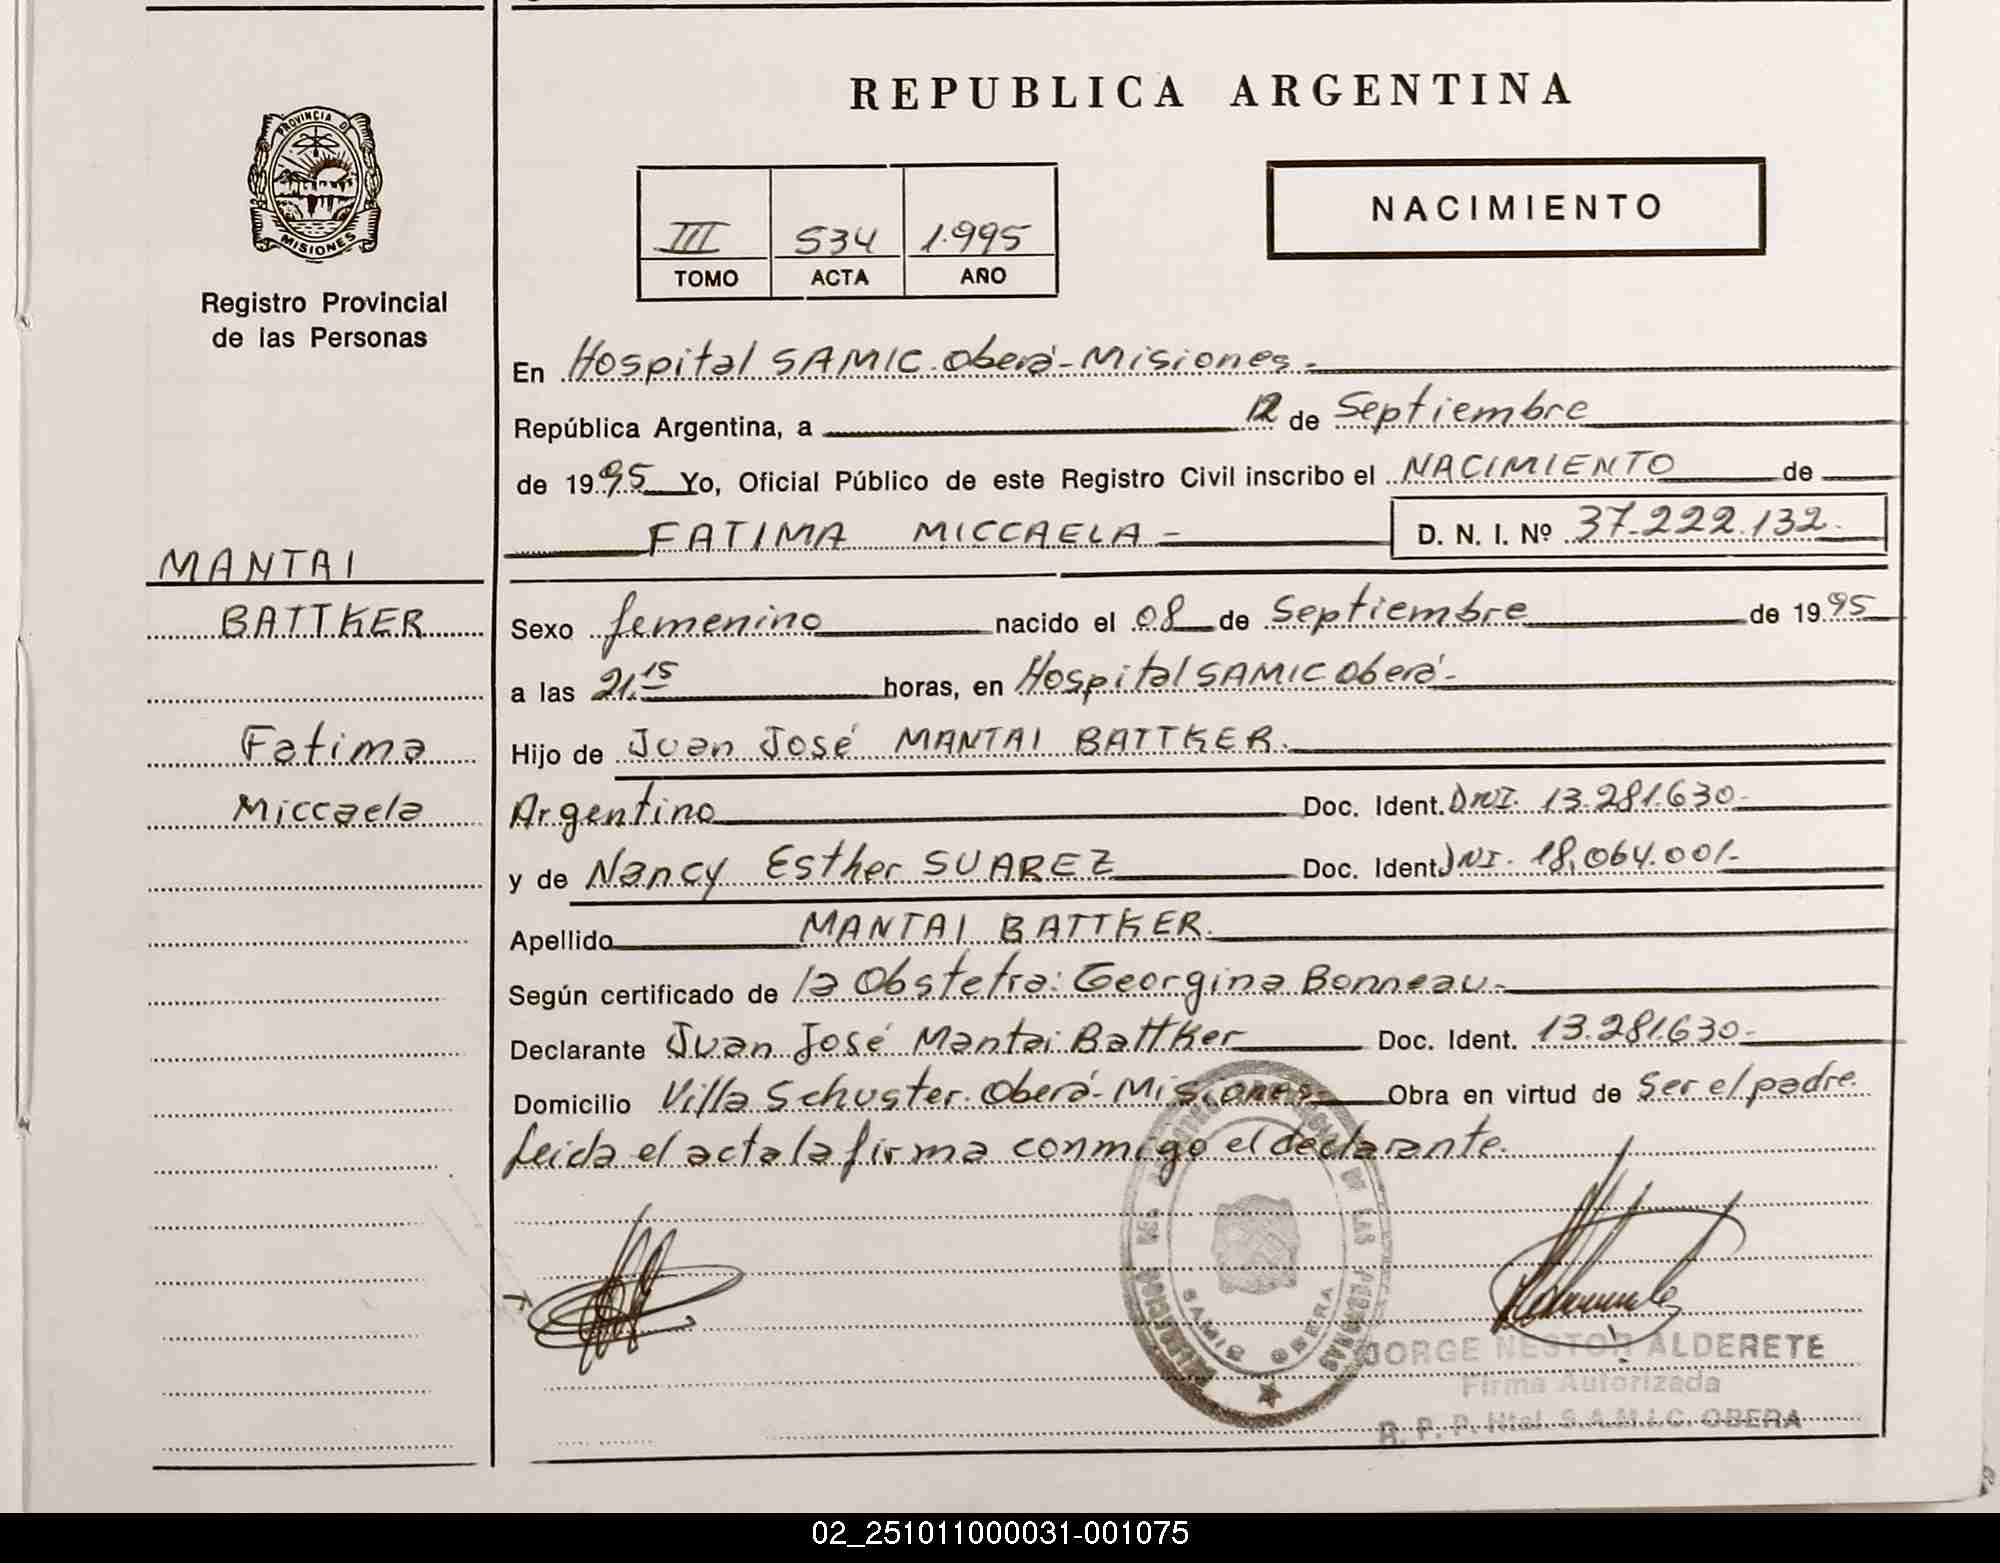 REPUBLICA ARGENTINA
PROVINCIA DE
MISIONES
Registro Provincial
de las Personas
III 534 1.995
TOMO ACTA AÑO
NACIMIENTO
En Hospital SAMIC. Oberá-Misiones.-
República Argentina, a 12 de Septiembre
de 1995 Yo, Oficial Público de este Registro Civil inscribo el NACIMIENTO de
FATIMA MICCAELA- D. N. I. Nº 37.222.132.-
MANTAI
BATTKER
Fatima
Miccaela
Sexo femenino nacido el 08 de Septiembre de 1995
a las 21.15 horas, en Hospital SAMIC Oberá.-
Hijo de Juan José MANTAI BATTKER.
Argentino Doc. Ident. DNI. 13.281.630-
y de Nancy Esther SUAREZ Doc. Ident. DNI. 18.064.001.-
Apellido MANTAI BATTKER.
Según certificado de la Obstetra: Georgina Bonneau.-
Declarante Juan José Mantai Battker Doc. Ident. 13.281.630-
Domicilio Villa Schuster. Oberá-Misiones- Obra en virtud de Ser el padre.
Leida el acta la firma conmigo el declarante.
PROVINCIAL DE LAS PERSONAS
SAMIC OBERA
JORGE NESTOR ALDERETE
Firma Autorizada
R. P. P. Htal. S.A.M.I.C. OBERA
02_251011000031-001075